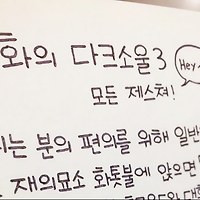 화의 다크소울3
Hey
모든 제스쳐!
는 분의 편의를 위해 일반
재의묘소 화톳불에 앉으면